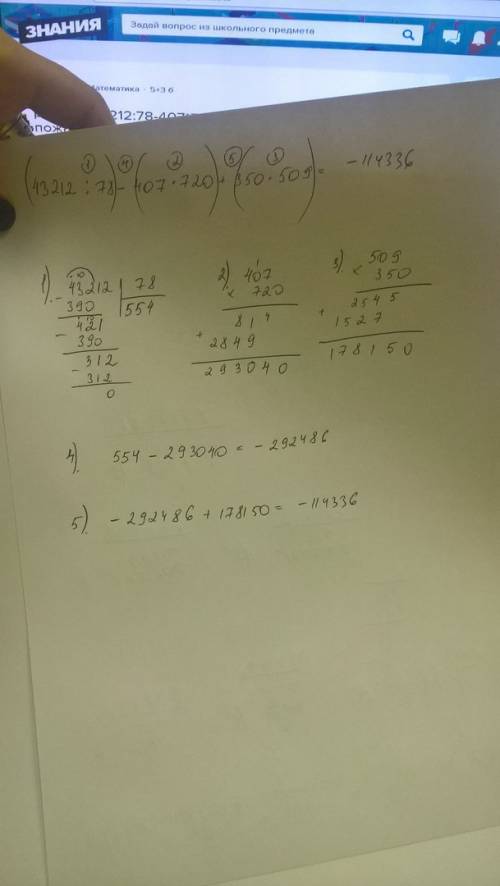 ЗНАНИЯ
Задай вопрос из школьного предмета
атематика · 5+3 б
212:78-407
(43212 : 78) - (407 · 720) + (350 · 509) = -114336
1 4 2 5 3
1)
- 43212 | 78
390 | 554
- 421
390
- 312
312
0
2) 407
× 720
814
+ 2849
293040
3) 509
× 350
2545
+ 1527
178150
4) 554 - 293040 = - 292486
5) - 292486 + 178150 = - 114336